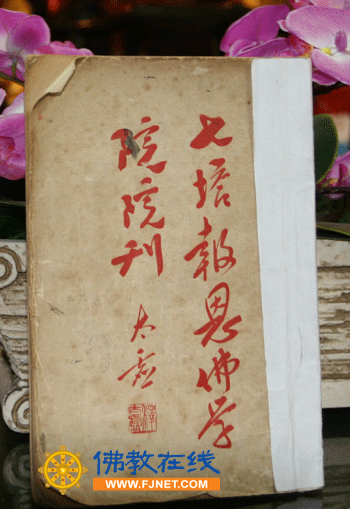 七塔報恩佛学
院院刊
太虚
佛教在线
WWW.FJNET.COM